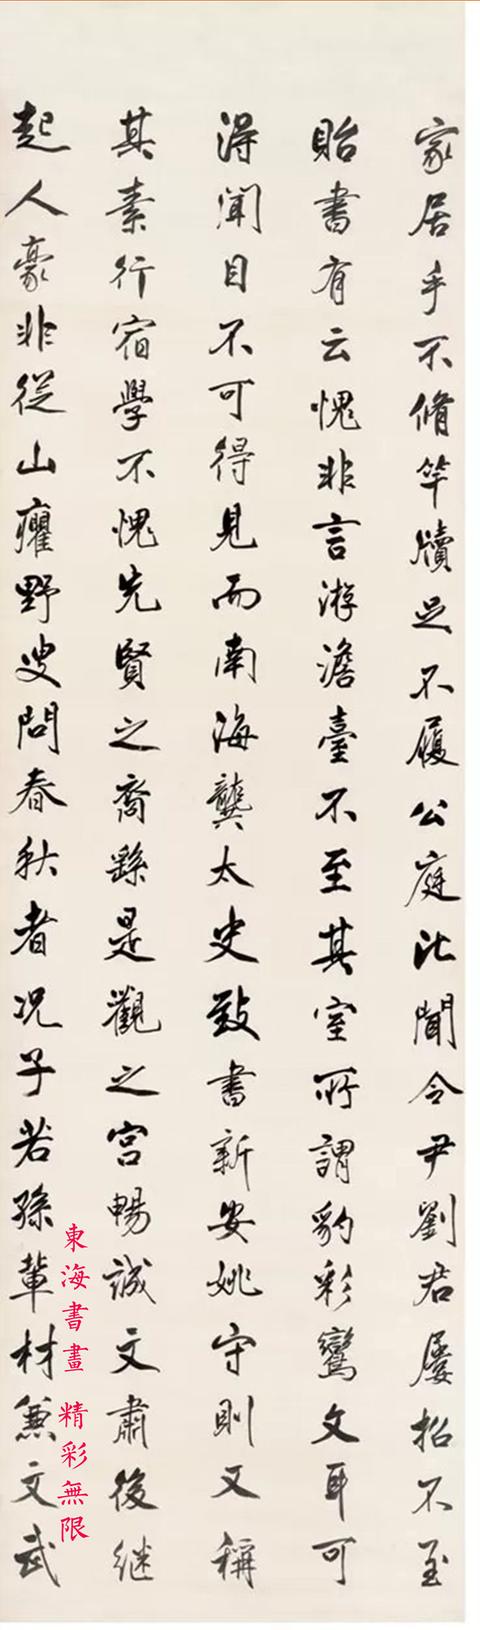 家居手不脩竿牘足不履公庭比聞令尹劉君屢招不至
貽書有云愧非言游澹臺不至其室所謂豹彩鸞文耳可
得聞目不可得見而南海龔太史致書新安姚守則又稱
其素行宿學不愧先賢之裔繇是觀之宫暢誠文肅後继
起人豪非從山癯野叟問春秋者况子若孫輩材兼文武
東海書畫 精彩無限